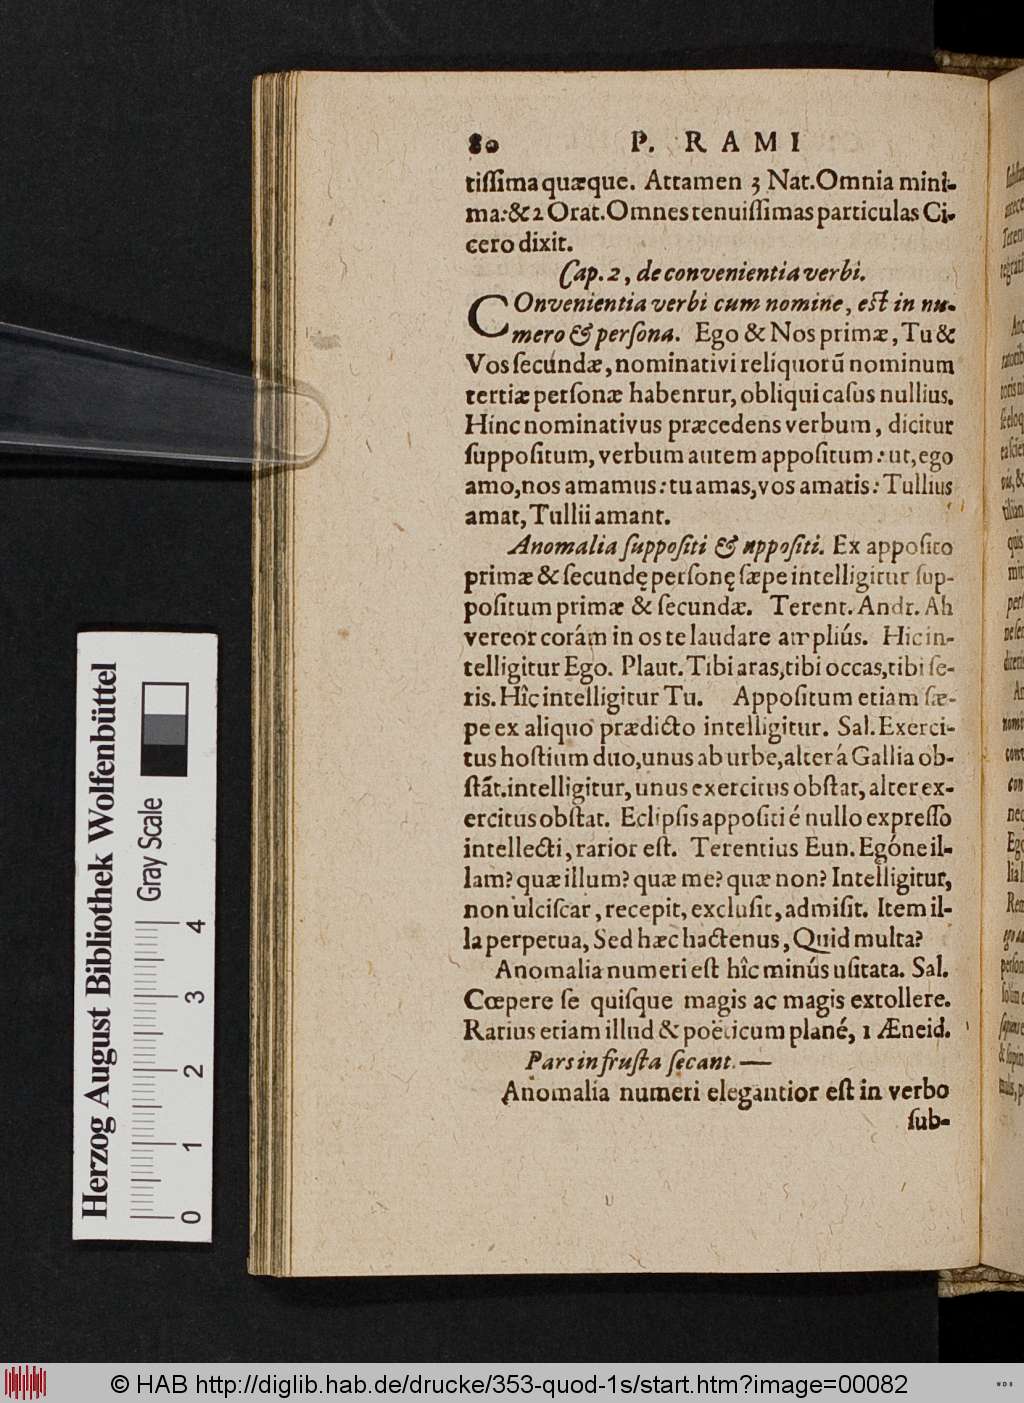 80 P. RAMI
tiſſima quæque. Attamen 3 Nat. Omnia mini-
ma: & 2 Orat. Omnes tenuiſſimas particulas Ci-
cero dixit.
Cap. 2, de convenientia verbi.
COnvenientia verbi cum nomine, eſt in nu-
mero & perſona. Ego & Nos primæ, Tu &
Vos ſecundæ, nominativi reliquorũ nominum
tertiæ perſonæ habentur, obliqui caſus nullius.
Hinc nominativus præcedens verbum, dicitur
ſuppoſitum, verbum autem appoſitum: ut, ego
amo, nos amamus: tu amas, vos amatis: Tullius
amat, Tullii amant.
Anomalia ſuppoſiti & appoſiti. Ex appoſito
primæ & ſecundę perſonę ſæpe intelligitur ſup-
poſitum primæ & ſecundæ. Terent. Andr. Ah
vereor corám in os te laudare ampliús. Hic in-
telligitur Ego. Plaut. Tibi aras, tibi occas, tibi ſe-
ris. Hîc intelligitur Tu. Appoſitum etiam ſæ-
pe ex aliquo prædicto intelligitur. Sal. Exerci-
tus hoſtium duo, unus ab urbe, alter á Gallia ob-
ſtãt. intelligitur, unus exercitus obſtat, alter ex-
ercitus obſtat. Eclipſis appoſiti é nullo expreſſo
intellecti, rarior eſt. Terentius Eun. Egóne il-
lam? quæ illum? quæ me? quæ non? Intelligitur,
non ulciſcar, recepit, excluſit, admiſit. Item il-
la perpetua, Sed hæc hactenus, Quid multa?
Anomalia numeri eſt hîc minús uſitata. Sal.
Cœpere ſe quiſque magis ac magis extollere.
Rarius etiam illud & poëticum plané, 1 Æneid.
Pars in fruſta ſecant. —
Anomalia numeri elegantior eſt in verbo
ſub-
Herzog August Bibliothek Wolfenbüttel
Gray Scale
0 1 2 3 4
© HAB http://diglib.hab.de/drucke/353-quod-1s/start.htm?image=00082